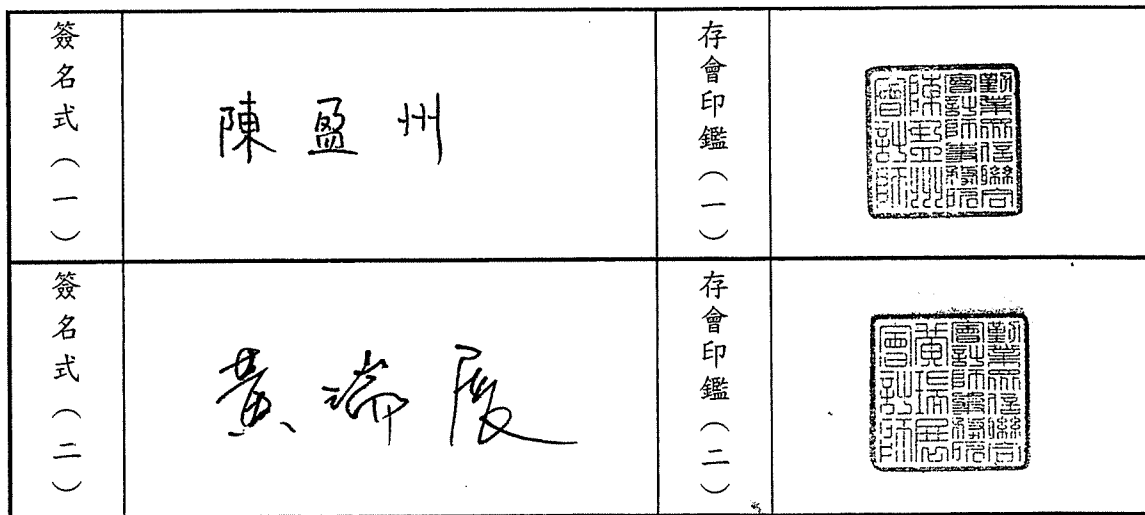 簽名式（一）
陳盈州
存會印鑑（一）
勤業眾信聯合
會計師事務所
陳盈州
會計師
簽名式（二）
黃瑞展
存會印鑑（二）
勤業眾信聯合
會計師事務所
黃瑞展
會計師